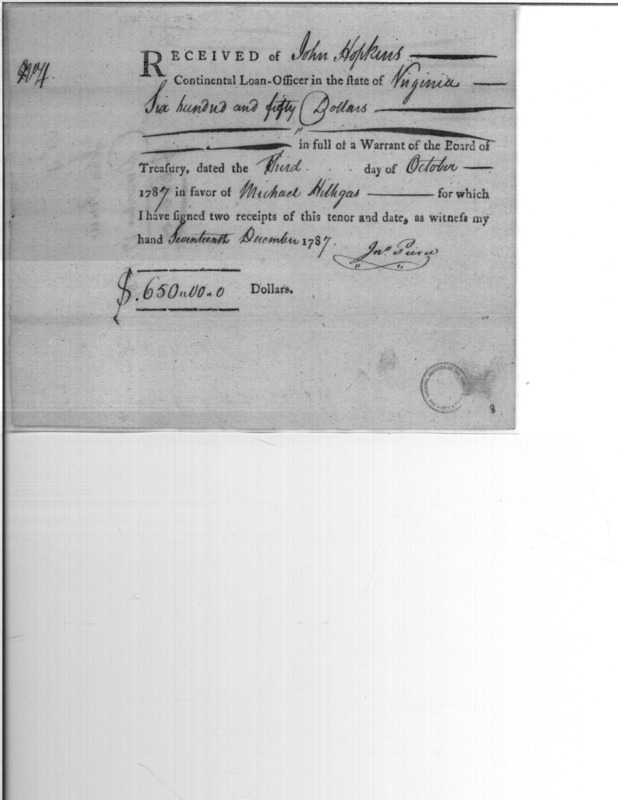 No 4.
RECEIVED of John Hopkins
Continental Loan-Officer in the ſtate of Virginia
Six hundred and fifty Dollars
in full of a Warrant of the Board of
Treaſury, dated the Third day of October
1787 in favor of Michael Hillegas for which
I have ſigned two receipts of this tenor and date, as witneſs my
hand Seventeenth December 1787.
Jno. Pierce
$.650.00.0 Dollars.
8